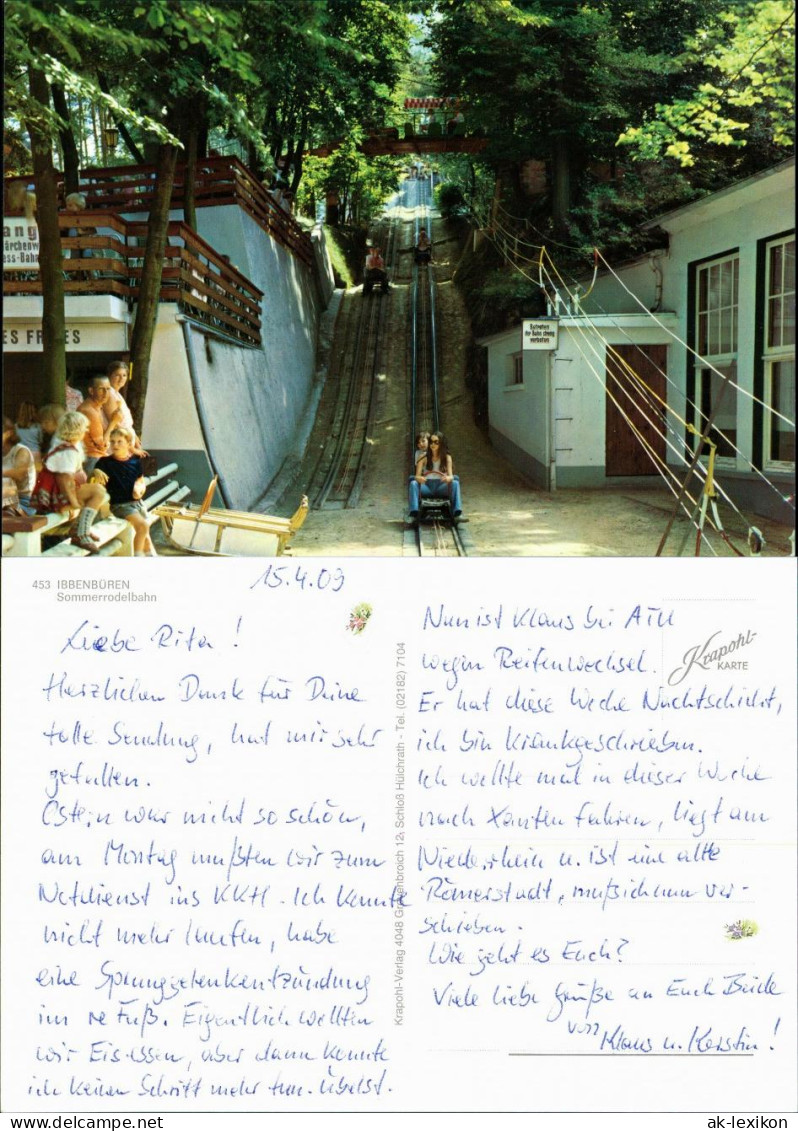 ang
ärchenw
ess-Bahn
ES FR ES
Betreten
der Bahn streng
verboten
453 IBBENBÜREN
Sommerrodelbahn
15.4.09
Liebe Rita!
Herzlichen Dank für Deine
tolle Sendung, hat mir sehr
gefallen.
Ostern war nicht so schön,
am Montag mußten wir zum
Notdienst ins KKH. Ich konnte
nicht mehr laufen, habe
eine Sprunggelenkentzündung
im re Fuß. Eigentlich wollten
wir Eis essen, aber dann konnte
ich keinen Schritt mehr tun. Übelst.
Krapohl-Verlag 4048 Grevenbroich 12, Schloß Hülchrath - Tel. (02182) 7104
Nun ist Klaus bei ATU
wegen Reifenwechsel.
Er hat diese Woche Nachtschicht,
ich bin krankgeschrieben.
Ich wollte mal in dieser Woche
nach Xanten fahren, liegt am
Niederrhein u. ist eine alte
Römerstadt, muß ich nun ver-
schieben.
Wie geht es Euch?
Viele liebe Grüße an Euch Beide
von Klaus u. Kerstin!
Krapohl-
KARTE
ak-ansichtskarten.de
ak-lexikon.com